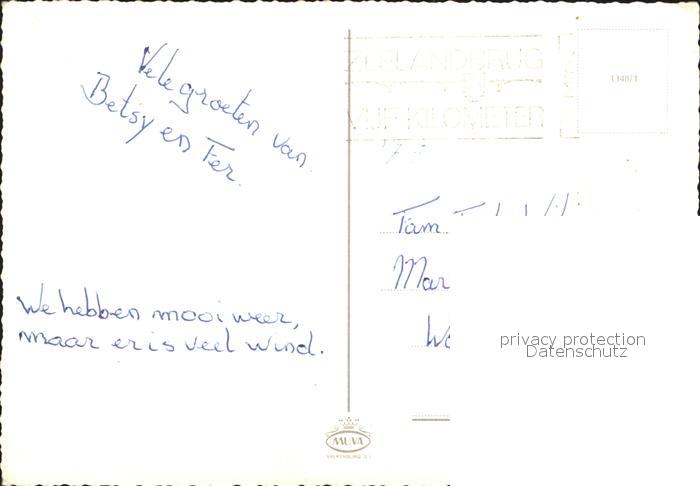 Vele groeten van
Betsy en Fer.
We hebben mooi weer,
maar er is veel wind.
ZEELANDBRUG
VIJF KILOMETER
134871
Fam.
Mar
privacy protection
Datenschutz
MUVA
VALKENBURG